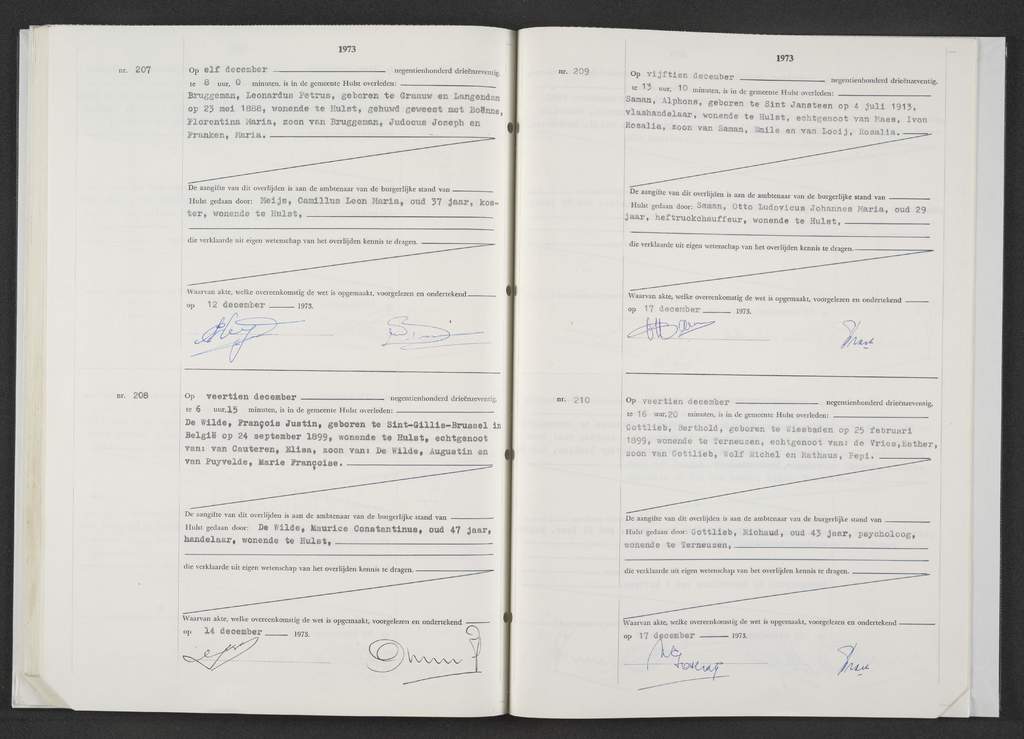 1973
nr. 207
Op elf december negentienhonderd drieënzeventig,
te 8 uur, 0 minuten, is in de gemeente Hulst overleden:
Bruggeman, Leonardus Petrus, geboren te Graauw en Langendam
op 23 mei 1888, wonende te Hulst, gehuwd geweest met Boënne,
Florentina Maria, zoon van Bruggeman, Judocus Joseph en
Franken, Maria.
De aangifte van dit overlijden is aan de ambtenaar van de burgerlijke stand van
Hulst gedaan door: Meijs, Camillus Leon Maria, oud 37 jaar, kos-
ter, wonende te Hulst,
die verklaarde uit eigen wetenschap van het overlijden kennis te dragen.
Waarvan akte, welke overeenkomstig de wet is opgemaakt, voorgelezen en ondertekend
op 12 december 1973.
nr. 208
Op veertien december negentienhonderd drieënzeventig,
te 6 uur, 15 minuten, is in de gemeente Hulst overleden:
De Wilde, François Justin, geboren te Sint-Gillis-Brussel in
België op 24 september 1899, wonende te Hulst, echtgenoot
van: van Cauteren, Elisa, zoon van: De Wilde, Augustin en
van Puyvelde, Marie Françoise.
De aangifte van dit overlijden is aan de ambtenaar van de burgerlijke stand van
Hulst gedaan door: De Wilde, Maurice Constantinus, oud 47 jaar,
handelaar, wonende te Hulst,
die verklaarde uit eigen wetenschap van het overlijden kennis te dragen.
Waarvan akte, welke overeenkomstig de wet is opgemaakt, voorgelezen en ondertekend
op 14 december 1973.
1973
nr. 209
Op vijftien december negentienhonderd drieënzeventig,
te 13 uur, 10 minuten, is in de gemeente Hulst overleden:
Saman, Alphons, geboren te Sint Jansteen op 4 juli 1913,
vlashandelaar, wonende te Hulst, echtgenoot van Maes, Ivon
Rosalia, zoon van Saman, Emile en van Looij, Rosalia.
De aangifte van dit overlijden is aan de ambtenaar van de burgerlijke stand van
Hulst gedaan door: Saman, Otto Ludovicus Johannes Maria, oud 29
jaar, heftruckchauffeur, wonende te Hulst,
die verklaarde uit eigen wetenschap van het overlijden kennis te dragen.
Waarvan akte, welke overeenkomstig de wet is opgemaakt, voorgelezen en ondertekend
op 17 december 1973.
nr. 210
Op veertien december negentienhonderd drieënzeventig,
te 16 uur, 20 minuten, is in de gemeente Hulst overleden:
Gottlieb, Berthold, geboren te Wiesbaden op 25 februari
1899, wonende te Terneuzen, echtgenoot van: de Vries, Esther,
zoon van Gottlieb, Wolf Michel en Rathaus, Pepi.
De aangifte van dit overlijden is aan de ambtenaar van de burgerlijke stand van
Hulst gedaan door: Gottlieb, Michaud, oud 43 jaar, psycholoog,
wonende te Terneuzen,
die verklaarde uit eigen wetenschap van het overlijden kennis te dragen.
Waarvan akte, welke overeenkomstig de wet is opgemaakt, voorgelezen en ondertekend
op 17 december 1973.